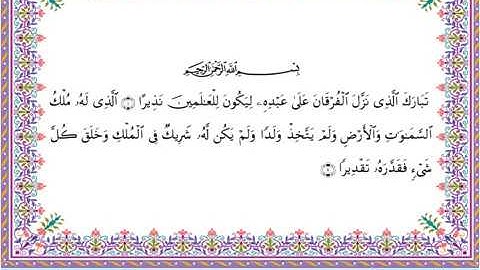 بِسْمِ اللَّهِ الرَّحْمَٰنِ الرَّحِيمِ
تَبَارَكَ الَّذِى نَزَّلَ الْفُرْقَانَ عَلَىٰ عَبْدِهِۦ لِيَكُونَ لِلْعَٰلَمِينَ نَذِيرًا ۝١ الَّذِى لَهُۥ مُلْكُ
السَّمَٰوَٰتِ وَالْأَرْضِ وَلَمْ يَتَّخِذْ وَلَدًا وَلَمْ يَكُن لَّهُۥ شَرِيكٌ فِى الْمُلْكِ وَخَلَقَ كُلَّ
شَىْءٍ فَقَدَّرَهُۥ تَقْدِيرًا ۝٢